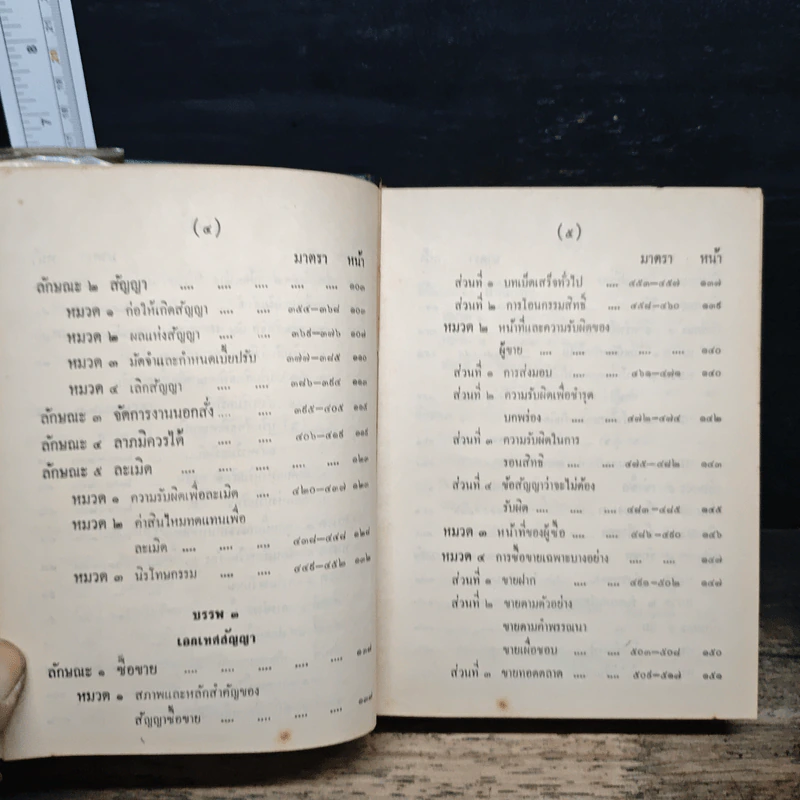 (๔)
มาตรา หน้า
ลักษณะ ๒ สัญญา .... .... .... .... ๑๐๓
หมวด ๑ ก่อให้เกิดสัญญา .... ๓๕๔—๓๖๘ ๑๐๓
หมวด ๒ ผลแห่งสัญญา .... .... ๓๖๙—๓๗๖ ๑๐๗
หมวด ๓ มัดจำและกำหนดเบี้ยปรับ ๓๗๗—๓๘๕ ๑๑๐
หมวด ๔ เลิกสัญญา .... .... ๓๘๖—๓๙๔ ๑๑๓
ลักษณะ ๓ จัดการงานนอกสั่ง .... .... ๓๙๕—๔๐๕ ๑๑๕
ลักษณะ ๔ ลาภมิควรได้ .... .... ๔๐๖—๔๑๙
ลักษณะ ๕ ละเมิด .... .... .... .... .... ๑๒๓
หมวด ๑ ความรับผิดเพื่อละเมิด .... ๔๒๐—๔๓๗ ๑๒๓
หมวด ๒ ค่าสินไหมทดแทนเพื่อ
ละเมิด .... .... ๔๓๘—๔๔๘ ๑๒๘
หมวด ๓ นิรโทษกรรม .... .... ๔๔๙—๔๕๒ ๑๓๒
บรรพ ๓
เอกเทศสัญญา
ลักษณะ ๑ ซื้อขาย .... .... .... .... .... ๑๓๗
หมวด ๑ สภาพและหลักสำคัญของ
สัญญาซื้อขาย .... .... .... .... ๑๓๗
(๕)
มาตรา หน้า
ส่วนที่ ๑ บทเบ็ดเสร็จทั่วไป .... ๔๕๓—๔๕๗ ๑๓๗
ส่วนที่ ๒ การโอนกรรมสิทธิ์ .... ๔๕๘—๔๖๐ ๑๓๙
หมวด ๒ หน้าที่และความรับผิดของ
ผู้ขาย .... .... .... .... .... ๑๔๐
ส่วนที่ ๑ การส่งมอบ .... .... ๔๖๑—๔๗๑ ๑๔๐
ส่วนที่ ๒ ความรับผิดเพื่อชำรุด
บกพร่อง .... .... ๔๗๒—๔๗๔ ๑๔๒
ส่วนที่ ๓ ความรับผิดในการ
รอนสิทธิ .... .... ๔๗๕—๔๘๒ ๑๔๓
ส่วนที่ ๔ ข้อสัญญาว่าจะไม่ต้อง
รับผิด .... .... .... ๔๘๓—๔๘๕ ๑๔๕
หมวด ๓ หน้าที่ของผู้ซื้อ .... .... ๔๘๖—๔๙๐ ๑๔๖
หมวด ๔ การซื้อขายเฉพาะบางอย่าง .... .... ๑๔๗
ส่วนที่ ๑ ขายฝาก .... .... ๔๙๑—๕๐๒ ๑๔๗
ส่วนที่ ๒ ขายตามตัวอย่าง
ขายตามคำพรรณนา
ขายเผื่อชอบ .... .... ๕๐๓—๕๐๘ ๑๕๐
ส่วนที่ ๓ ขายทอดตลาด .... .... ๕๐๙—๕๑๗ ๑๕๑